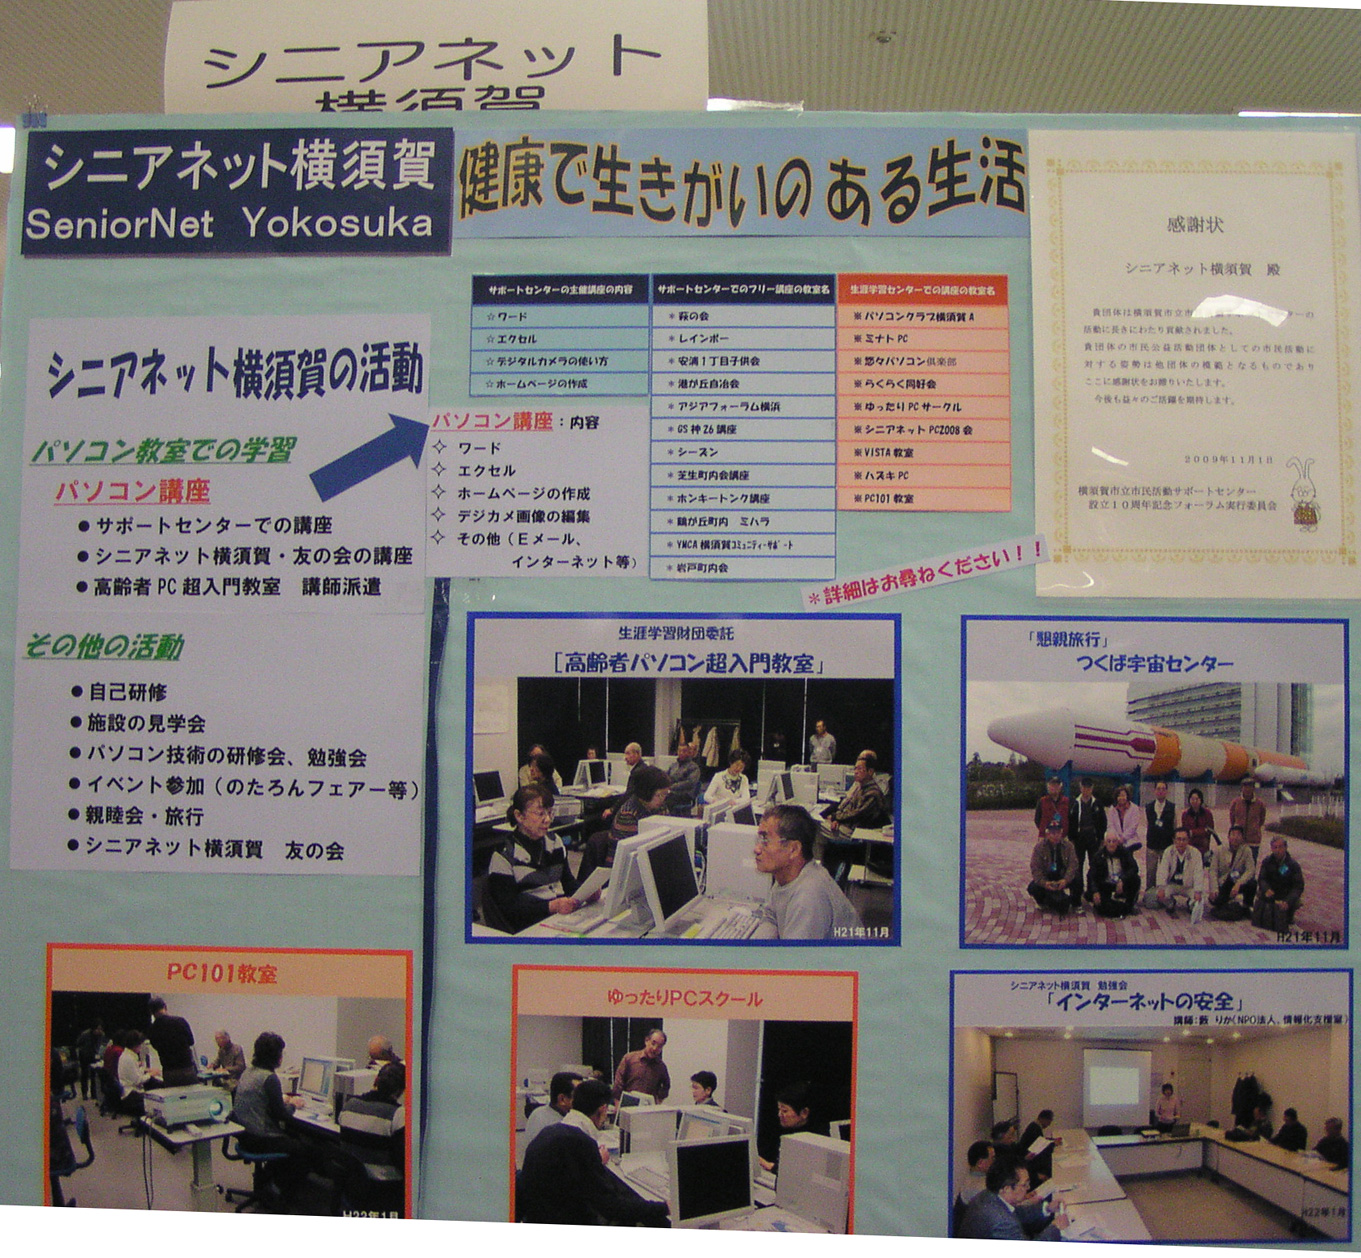 シニアネット
横須賀
シニアネット横須賀
SeniorNet Yokosuka
健康で生きがいのある生活
シニアネット横須賀の活動
パソコン教室での学習
パソコン講座
●サポートセンターでの講座
●シニアネット横須賀・友の会の講座
●高齢者PC超入門教室 講師派遣
その他の活動
●自己研修
●施設の見学会
●パソコン技術の研修会、勉強会
●イベント参加（のたろんフェアー等）
●親睦会・旅行
●シニアネット横須賀 友の会
パソコン講座：内容
✧ ワード
✧ エクセル
✧ ホームページの作成
✧ デジカメ画像の編集
✧ その他（Eメール、
インターネット等）
サポートセンターの主催講座の内容
☆ワード
☆エクセル
☆デジタルカメラの使い方
☆ホームページの作成
サポートセンターでのフリー講座の教室名
＊萩の会
＊レインボー
＊安浦1丁目子供会
＊港が丘自治会
＊アジアフォーラム横浜
＊GS神Z6講座
＊シーズン
＊芝生町内会講座
＊ホンキートンク講座
＊鶴が丘町内 ミハラ
＊YMCA横須賀コミュニティーサポート
＊岩戸町内会
生涯学習センターでの講座の教室名
※パソコンクラブ横須賀A
※ミナトPC
※悠々パソコン倶楽部
※らくらく同好会
※ゆったりPCサークル
※シニアネットPC2008会
※VISTA教室
※ハスキPC
※PC101教室
＊詳細はお尋ねください！！
感謝状
シニアネット横須賀 殿
貴団体は横須賀市立市
ターの
活動に長きにわたり貢献されました。
貴団体の市民公益活動団体としての市民活動に
対する姿勢は他団体の模範となるものであり
ここに感謝状をお贈りいたします。
今後も益々のご活躍を期待します。
2009年11月1日
横須賀市立市民活動サポートセンター
設立10周年記念フォーラム実行委員会
生涯学習財団委託
「高齢者パソコン超入門教室」
H21年11月
「懇親旅行」
つくば宇宙センター
H21年11月
PC101教室
H22年1月
ゆったりPCスクール
シニアネット横須賀 勉強会
「インターネットの安全」
講師：藪 りか（NPO法人、情報化支援室）
H22年1月